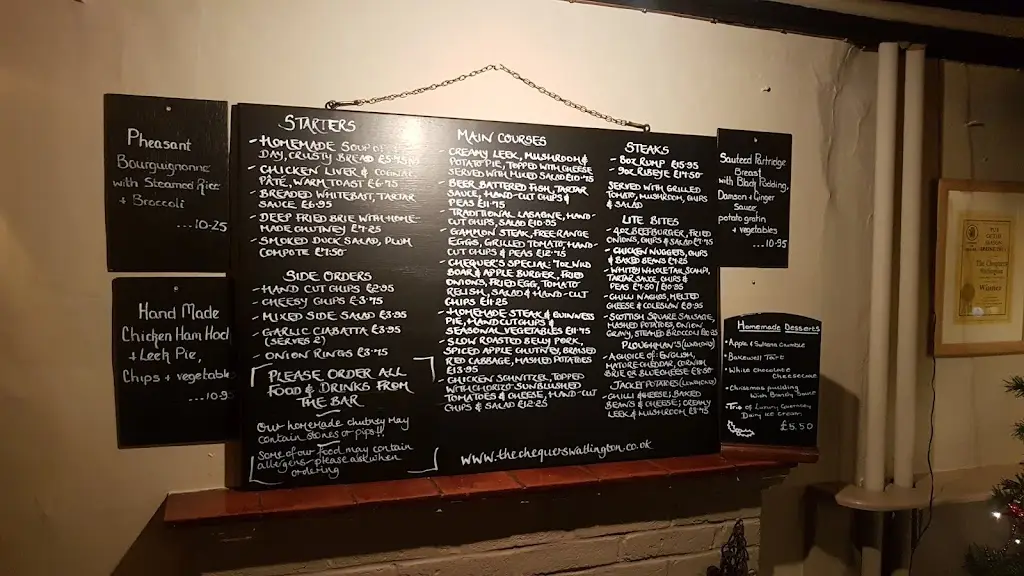 Pheasant
Bourguignonne
with Steamed Rice
+ Broccoli
...10-25
Hand Made
Chicken Ham Hock
+ Leek Pie,
Chips + vegetable
...10-95
STARTERS
- HOMEMADE SOUP OF
DAY, CRUSTY BREAD
- CHICKEN LIVER & COGNAC
PATE, WARM TOAST £6.75
- BREADED WHITEBAIT, TARTAR
SAUCE £6.95
- DEEP FRIED BRIE WITH HOME-
MADE CHUTNEY £7.25
- SMOKED DUCK SALAD, PLUM
COMPOTE £7.50
SIDE ORDERS
- HAND CUT CHIPS £2.95
- CHEESY CHIPS £3.75
- MIXED SIDE SALAD £3.95
- GARLIC CIABATTA £3.95
(SERVES 2)
- ONION RINGS £3.75
PLEASE ORDER ALL
FOOD & DRINKS FROM
THE BAR
Our homemade chutney may
contain stones or pips!!
Some of our food may contain
allergens - please ask when
ordering
MAIN COURSES
- CREAMY LEEK, MUSHROOM &
POTATO PIE, TOPPED WITH CHEESE
SERVED WITH MIXED SALAD £10.75
- BEER BATTERED FISH, TARTAR
SAUCE, HAND-CUT CHIPS &
PEAS £11.75
- TRADITIONAL LASAGNE, HAND-
CUT CHIPS, SALAD £10.95
- GAMMON STEAK, FREE RANGE
EGGS, GRILLED TOMATO, HAND-
CUT CHIPS & PEAS £12.75
- CHEQUER'S SPECIAL: 7OZ WILD
BOAR & APPLE BURGER, FRIED
ONIONS, FRIED EGG, TOMATO
RELISH, SALAD & HAND-CUT
CHIPS £11.25
- HOMEMADE STEAK & GUINNESS
PIE, HAND CUT CHIPS &
SEASONAL VEGETABLES £11.75
- SLOW ROASTED BELLY PORK,
SPICED APPLE CHUTNEY, BRAISED
RED CABBAGE, MASHED POTATOES
£13.95
- CHICKEN SCHNITZEL, TOPPED
WITH CHORIZO, SUNBLUSHED
TOMATOES & CHEESE, HAND-CUT
CHIPS & SALAD £12.25
www.thechequerswatlington.co.uk
STEAKS
- 8OZ RUMP £15.95
- 9OZ RIBEYE £17.50
SERVED WITH GRILLED
TOMATO, MUSHROOM, CHIPS
& SALAD
LITE BITES
- 4OZ BEEFBURGER, FRIED
ONIONS, CHIPS & SALAD £7.75
- CHICKEN NUGGETS, CHIPS
& BAKED BEANS £7.25
- WHITBY WHOLETAIL SCAMPI,
TARTAR SAUCE, CHIPS &
PEAS £7.50 / £10.95
- CHILLI NACHOS, MELTED
CHEESE & COLESLAW £8.95
- SCOTTISH SQUARE SAUSAGE,
MASHED POTATOES, ONION
GRAVY, STEAMED BROCCOLI £10.25
PLOUGHMAN'S (LUNCHTIMES)
- A CHOICE OF: ENGLISH,
MATURE CHEDDAR, CORNISH
BRIE OR BLUE CHEESE £8.50
JACKET POTATOES (LUNCHTIMES)
- CHILLI & CHEESE; BAKED
BEANS & CHEESE; CREAMY
LEEK & MUSHROOM £8.75
Sauteed Partridge
Breast
with Black Pudding,
Damson + Ginger
Sauce,
potato gratin
+ vegetables
...10-95
Homemade Desserts
• Apple & Sultana Crumble
• Bakewell Tart
• White Chocolate
Cheesecake
• Christmas pudding
with Brandy Sauce
• Trio of Luxury Guernsey
Dairy ice cream
£5.50
Winner